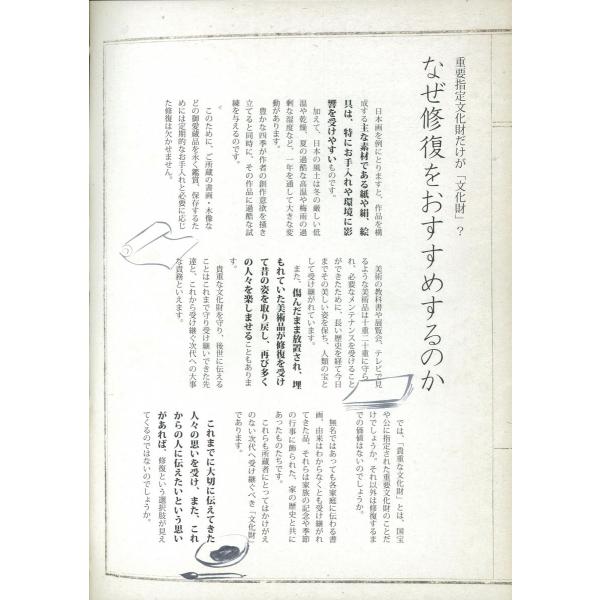 重要指定文化財だけが「文化財」?
なぜ修復をおすすめするのか
日本画を例にとりますと、作品を構
成する主な素材である紙や絹、絵
具は、特にお手入れや環境に影
響を受けやすいものです。
加えて、日本の風土は冬の厳しい低
温や乾燥、夏の過酷な高温や梅雨の過
剰な湿度など、一年を通して大きな変
動があります。
豊かな四季が作者の創作意欲を掻き
立てると同時に、その作品に過酷な試
練を与えるのです。
このために、ご所蔵の書画・木像な
どの御愛蔵品を永く鑑賞、保存するた
めには定期的なお手入れと必要に応じ
た修復は欠かせません。
美術の教科書や展覧会、テレビで見
るような美術品は十重二十重に守ら
れ、必要なメンテナンスを受けること
ができたために、長い歴史を経て今日
までその美しい姿を保ち、人類の宝と
して受け継がれています。
また、傷んだまま放置され、埋
もれていた美術品が修復を受け
て昔の姿を取り戻し、再び多く
の人々を楽しませることもありま
す。
貴重な文化財を守り、後世に伝える
ことはこれまで守り受け継いできた先
達と、これから受け継ぐ次代への大事
な責務といえます。
では、「貴重な文化財」とは、国宝
や公に指定された重要文化財のことだ
けでしょうか。それ以外は修復するま
での価値はないのでしょうか。
無名ではあっても各家庭に伝わる書
画、由来はわからなくとも受け継がれ
てきた品、それらは家族の記念や季節
の行事に飾られた、家の歴史と共に
あったものたちです。
これらも所蔵者にとってはかけがえ
のない次代へ受け継ぐべき「文化財」
であります。
これまでに大切に伝えてきた
人々の思いを受け、また、これ
からの人に伝えたいという思い
があれば、修復という選択肢が見え
てくるのではないのでしょうか。